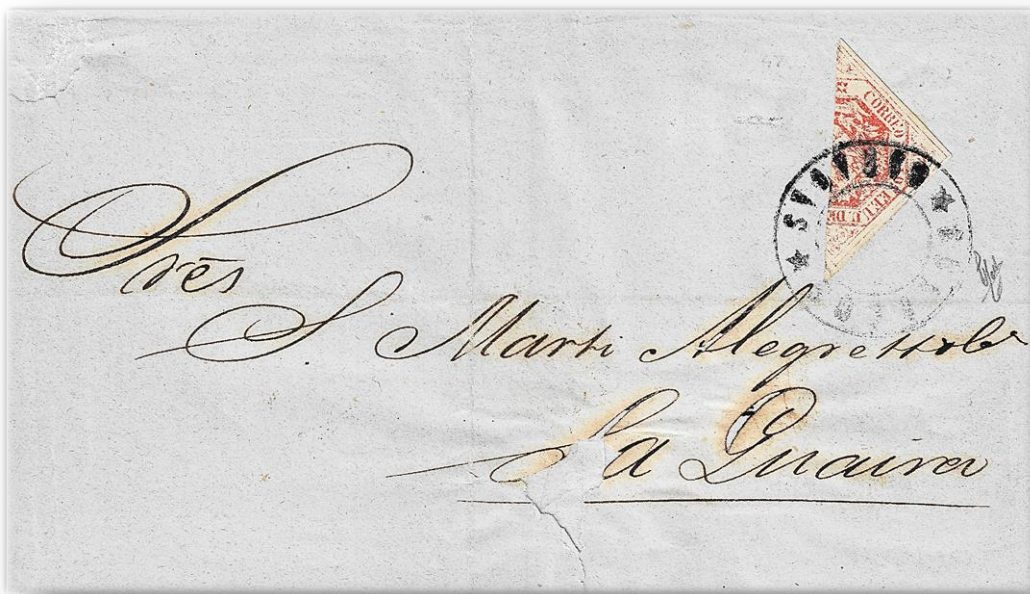 CORREO
EE.UU. DE
Sres
S. Marti Alegrett
La Guaira